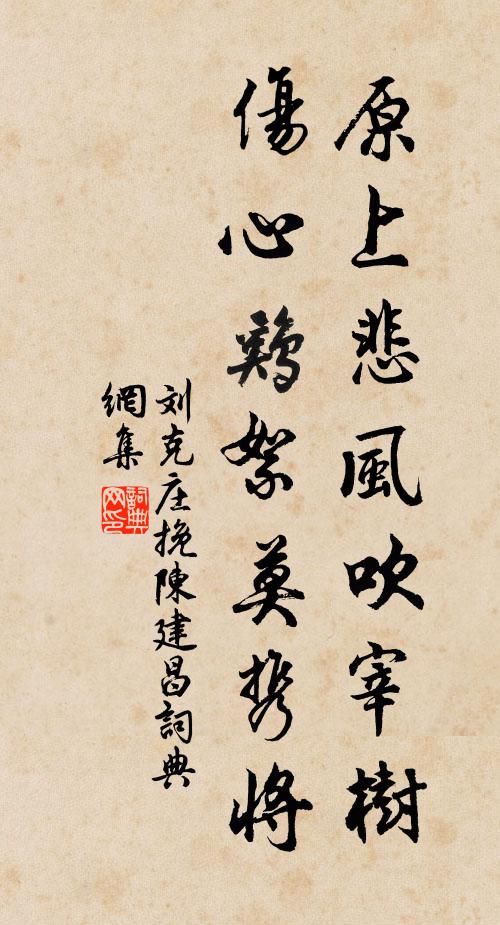 原上悲風吹宰樹
傷心鷄絮莫携將
刘克庄挽陳建昌詞典
網集
詞典網印